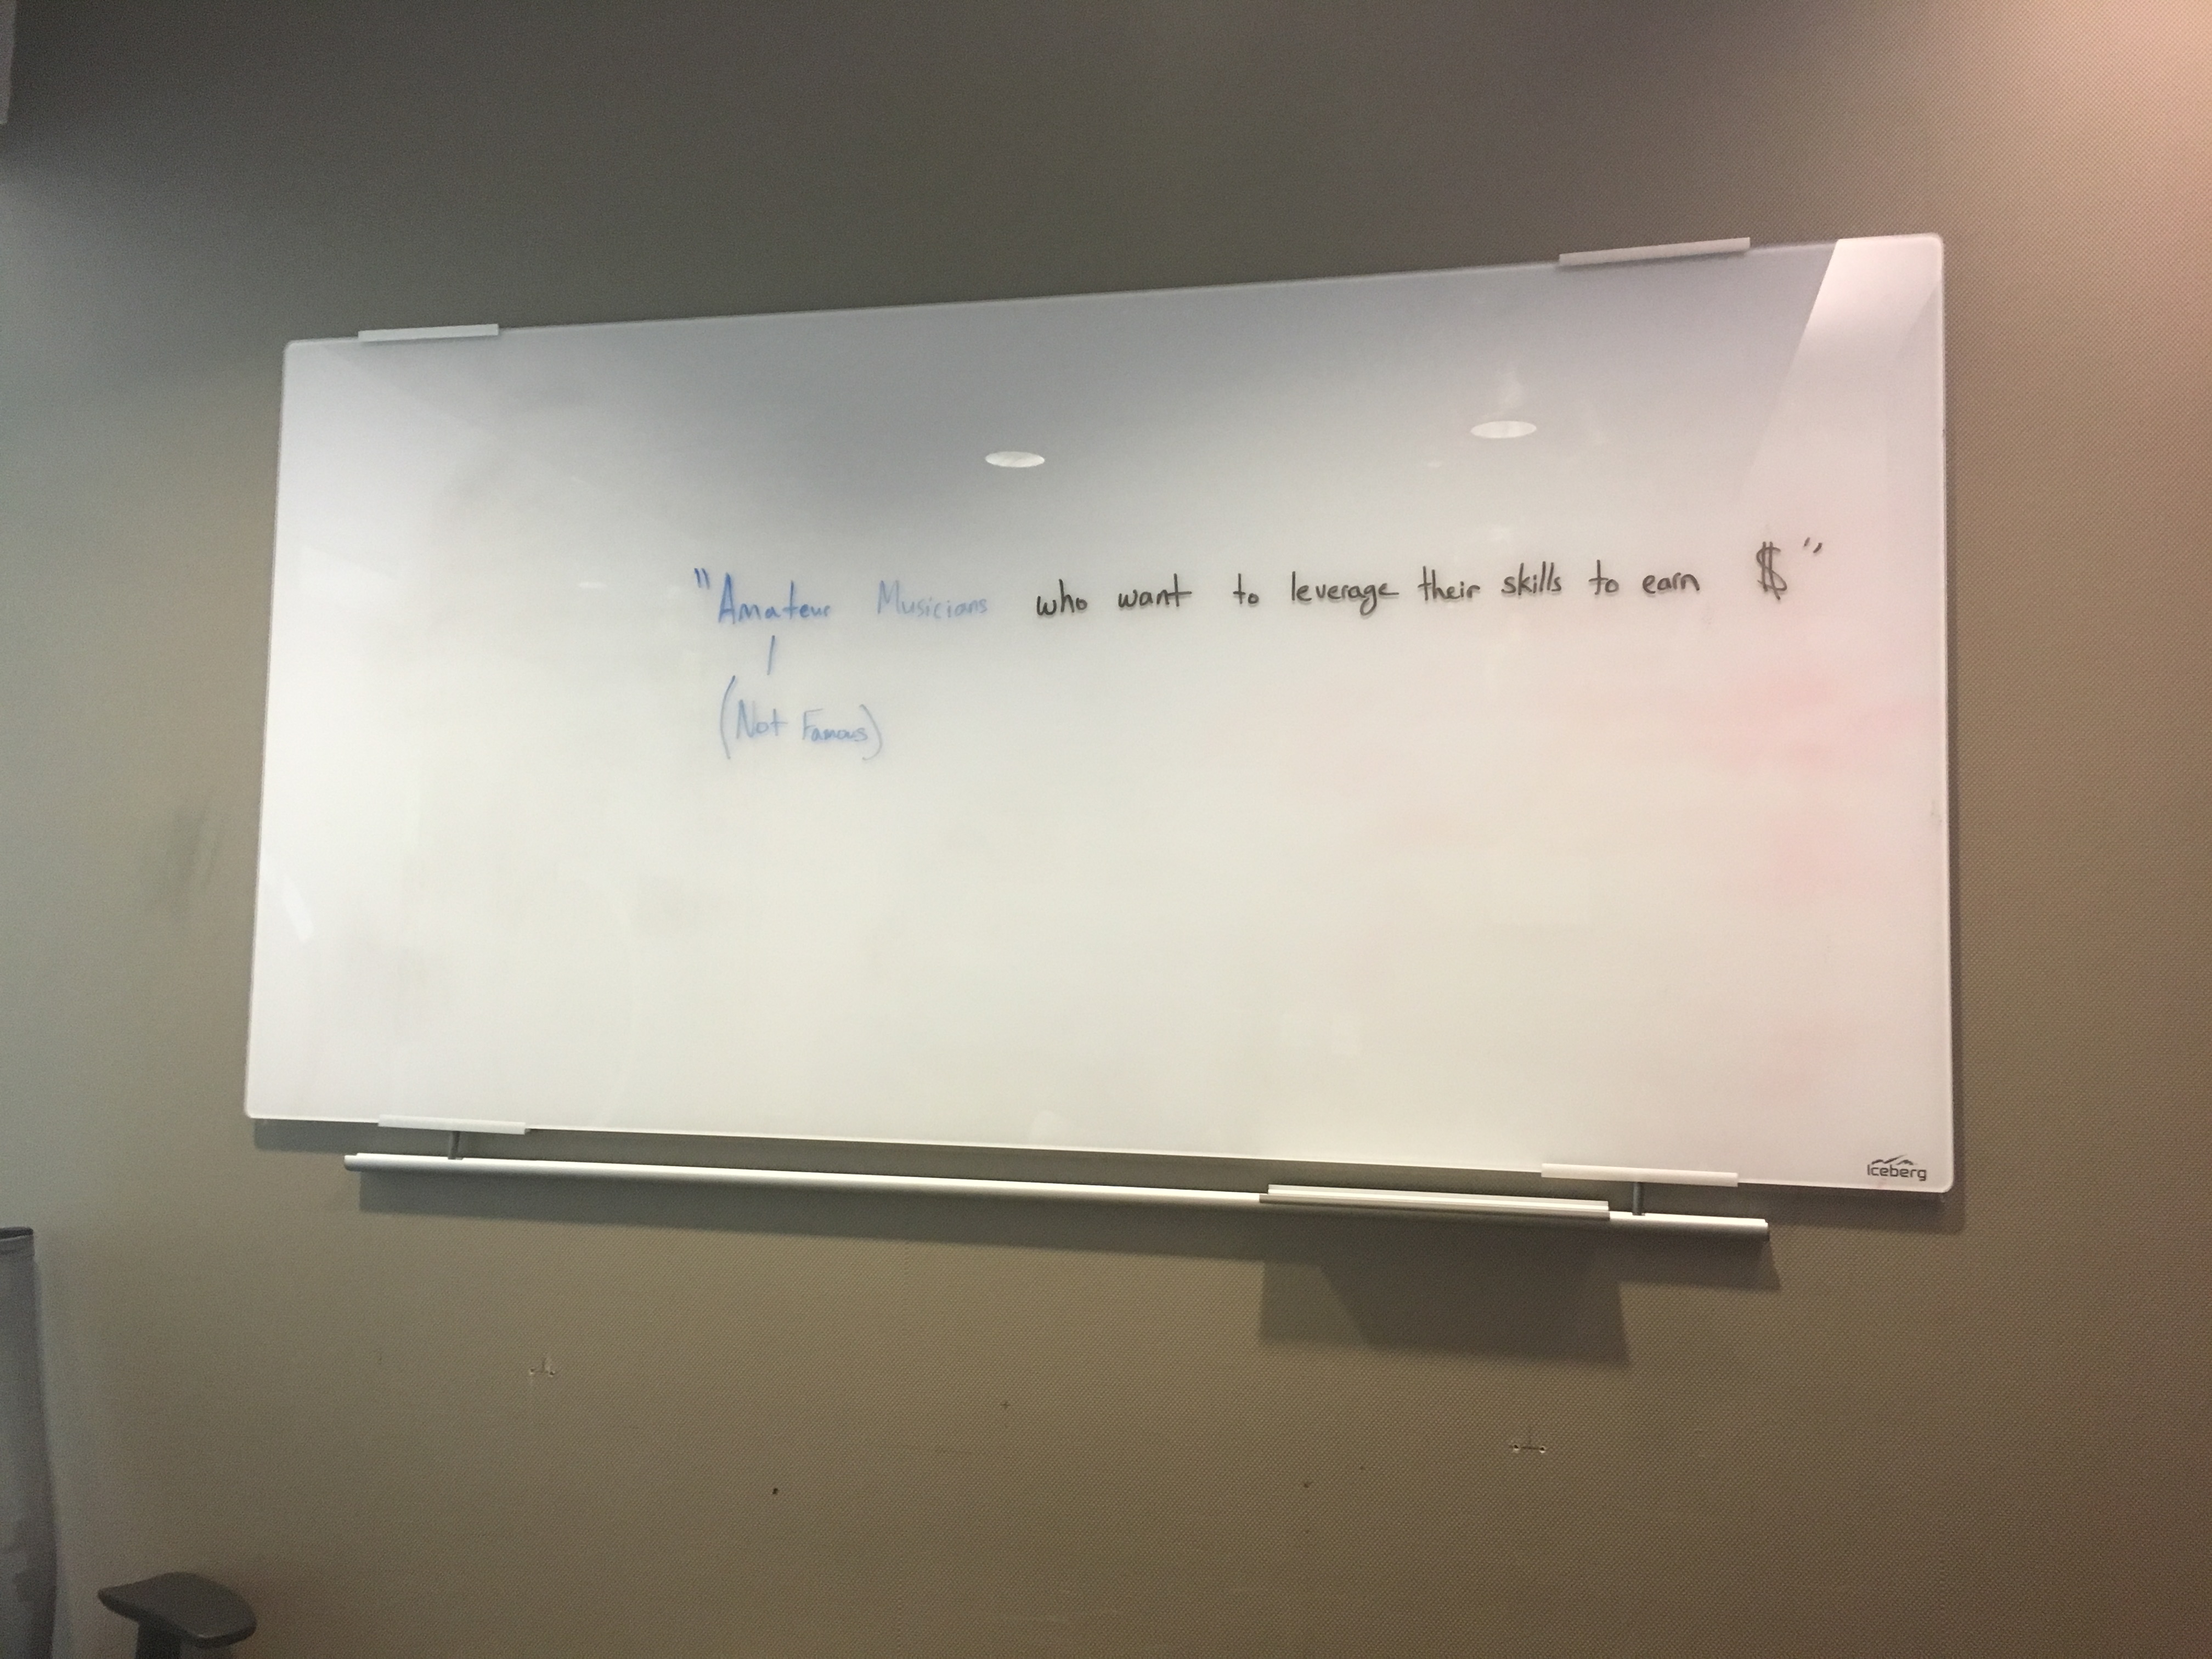 "Amateur Musicians who want to leverage their skills to earn $"
(Not Famous)
Iceberg